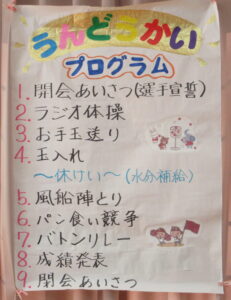 うんどうかい
プログラム
1. 開会あいさつ(選手宣誓)
2. ラジオ体操
3. お手玉送り
4. 玉入れ
～休けい～(水分補給)
5. 風船陣とり
6. パン食い競争
7. バトンリレー
8. 成績発表
9. 閉会あいさつ